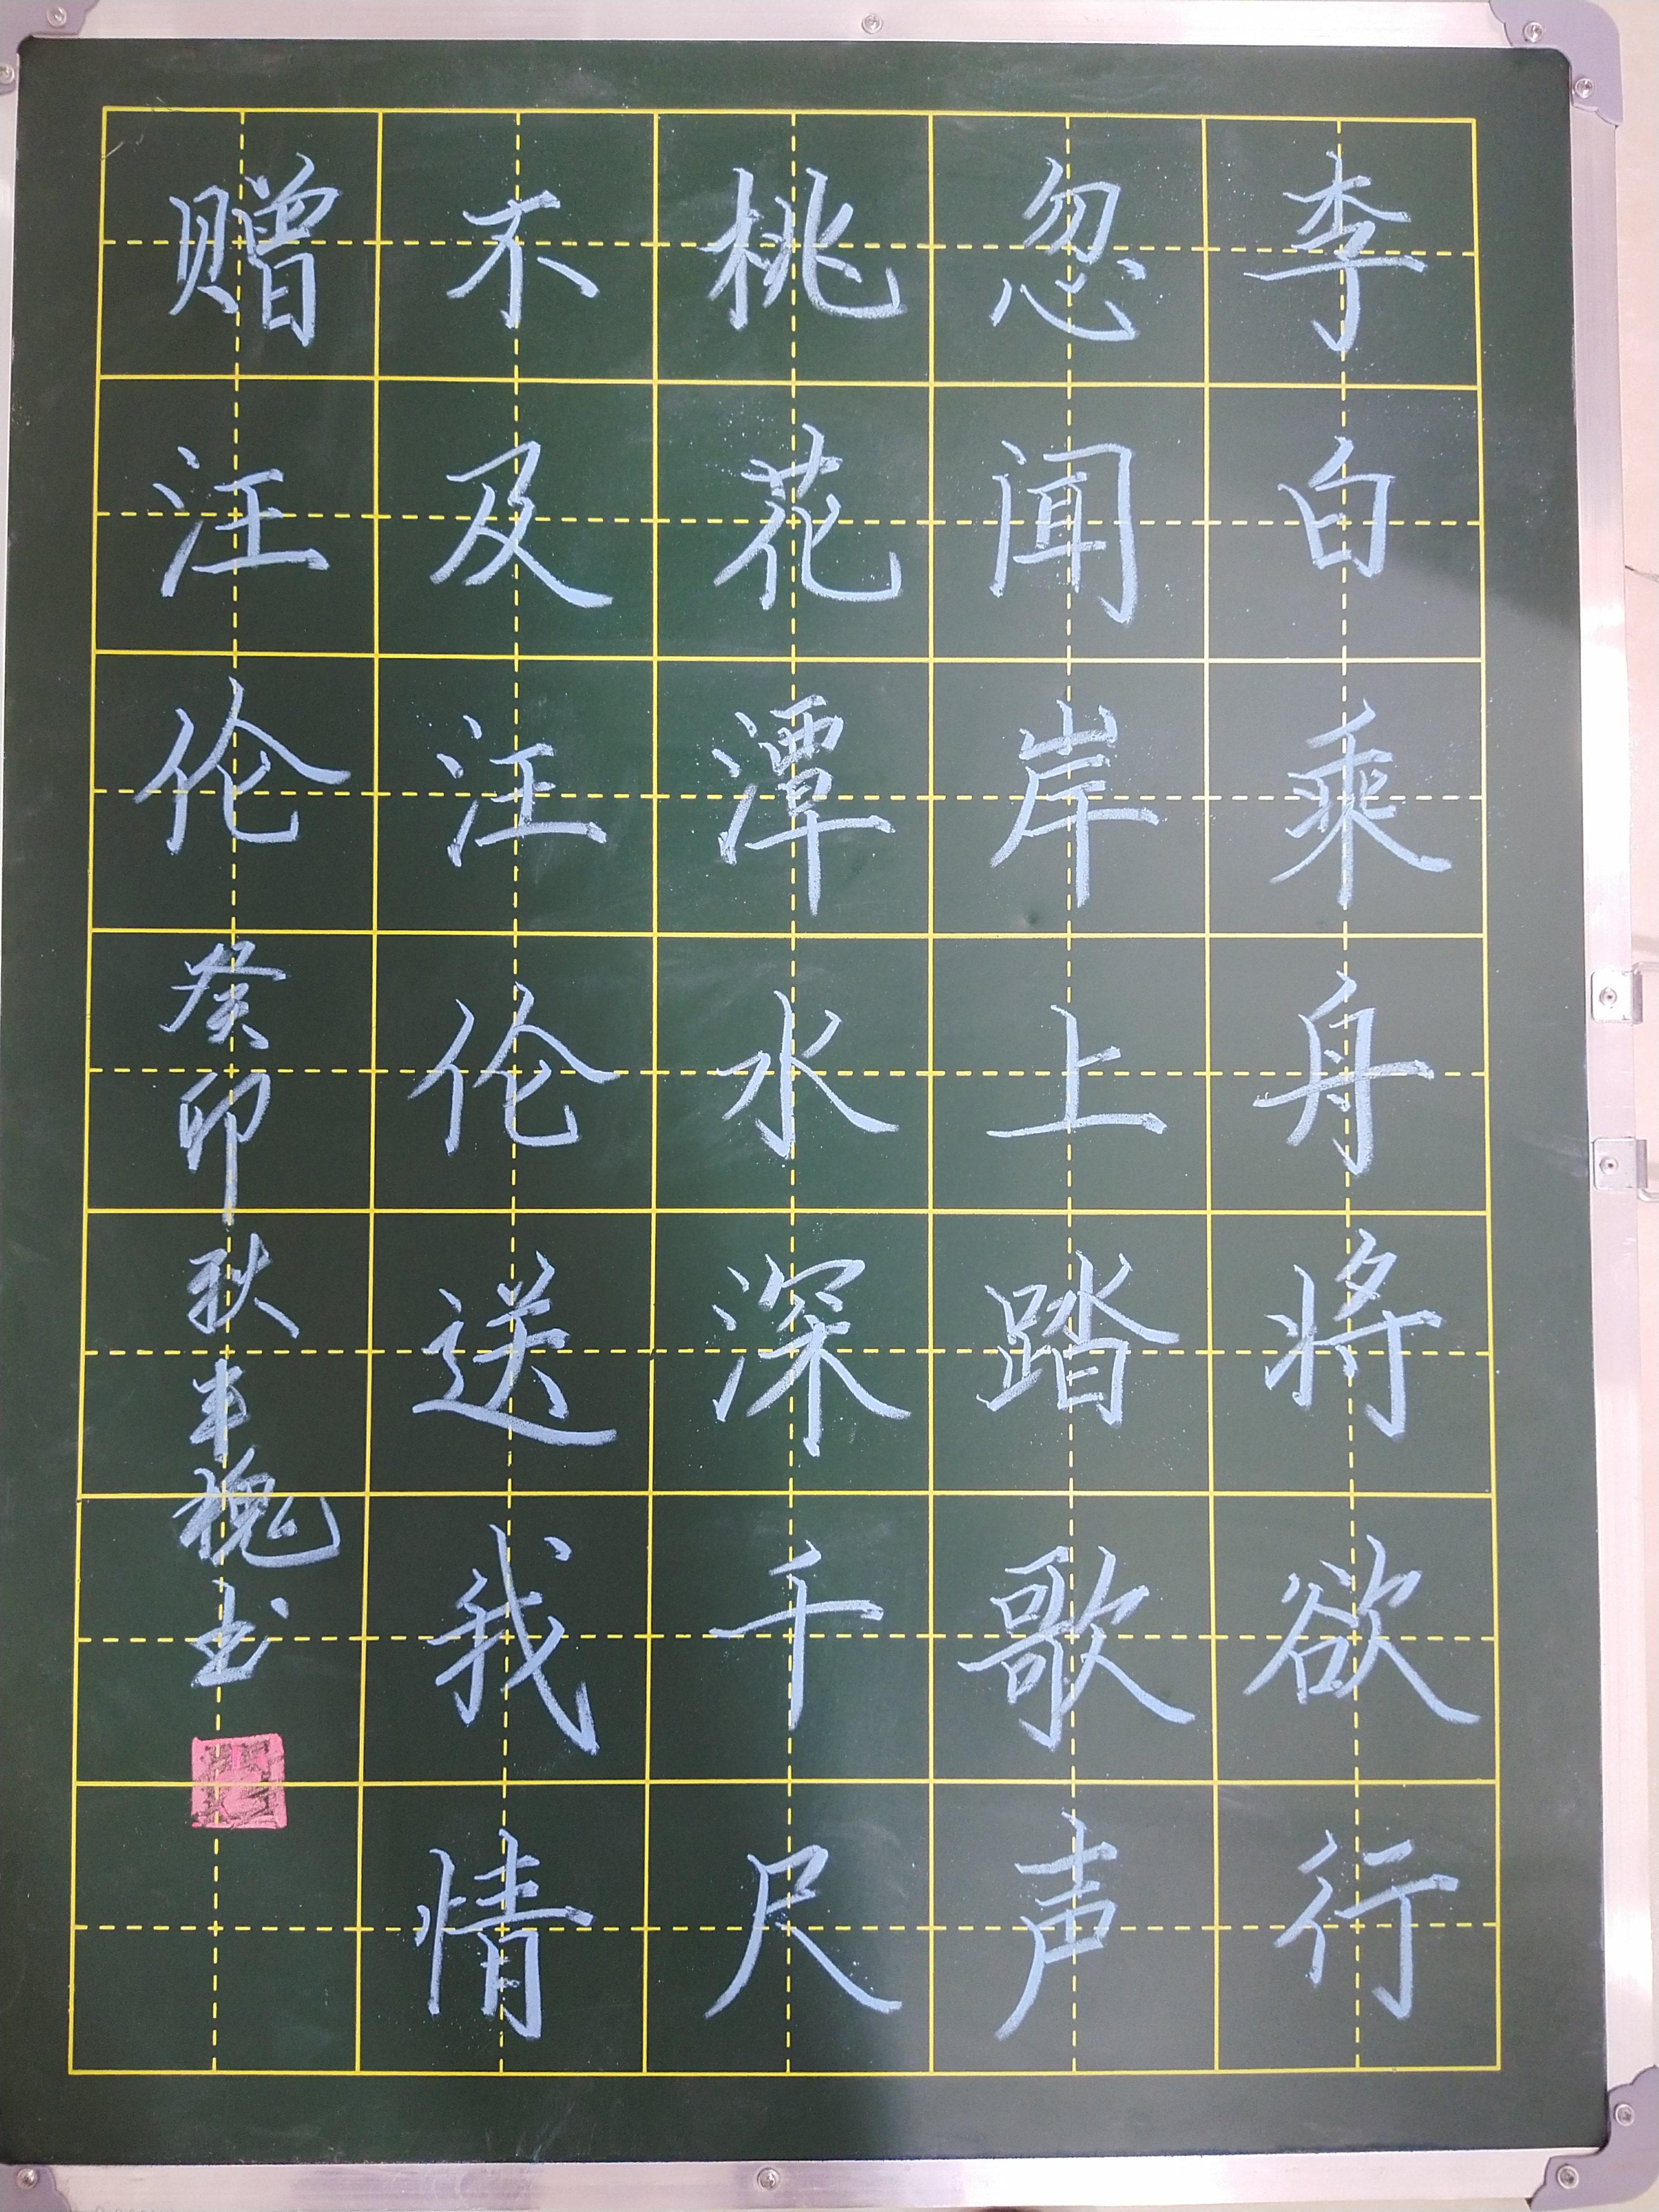 李白乘舟将欲行
忽闻岸上踏歌声
桃花潭水深千尺
不及汪伦送我情
赠汪伦 癸卯秋 槐书